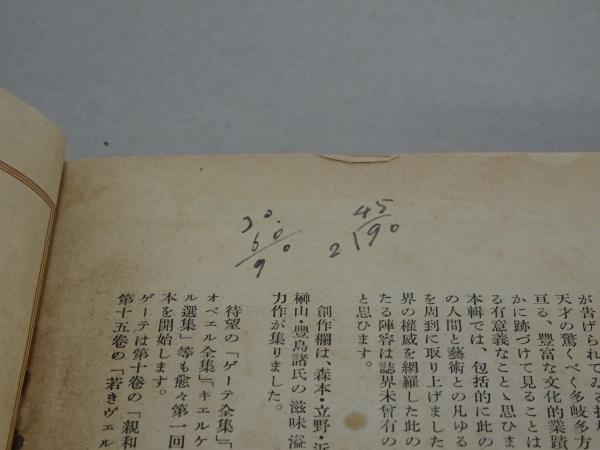 30.
60
90
45
2)90
が告げられてゐる
天才の驚くべく多岐多方
亘る、豊富な文化的業蹟
かに跡づけて見ることは
る有意義なことゝ思ひま
本輯では、包括的に此の
の人間と藝術との凡ゆる
を周到に取り上げました
界の權威を網羅した此の
たる陣容は誌界未曾有の
と思ひます。
創作欄は、森本・立野・浜
榊山・豊島諸氏の滋味溢
力作が集りました。
待望の『ゲーテ全集』『
オベエル全集』『キエルケ
ル選集』等も愈々第一回
本を開始します。
ゲーテは第十卷の『親和
第十五卷の『若きヴェル